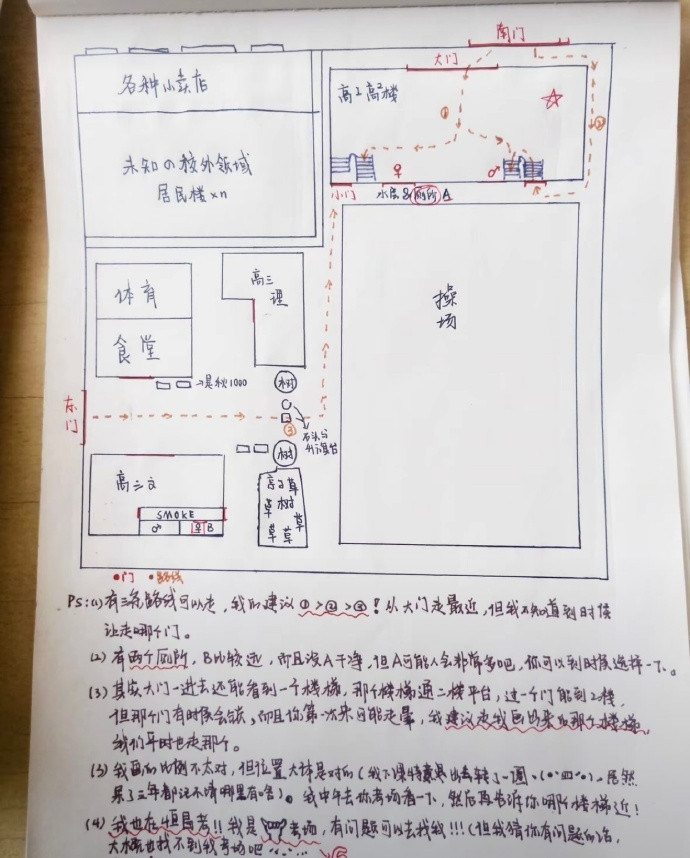 南门
大门
各种小卖店
高二高一楼
①
②
未知の校外领域
居民楼×n
♀
♂
小门
水房&厕所A
体育
食堂
高三理
操场
→是秋1000
树
东门
③
石头与
树
高三文
SMOKE
♂
♀B
草
树
草
草
草
草
●门 ●路线
PS:(1)有三条路线可以走，我的建议①>②>③！从大门走最近，但我不知道到时候
让走哪个门。
(2)有两个厕所，B比较远，而且没A干净，但A可能人会非常多吧，你可以到时候选择一下。
(3)其实大门一进去还能看到一个楼梯，那个楼梯通二楼平台，过一个门能到2楼，
但那个门有时候会锁，而且你第一次来可能走晕，我建议走我画出来的那个楼梯
我们平时也走那个。
(3)我画的比例不太对，但位置大体是对的(我下课特意出去转了一圈，居然
呆了三年都记不清哪里有啥)。我中午去你考场看一下，然后再告诉你哪个楼梯近！
(4)我也在恒昌考!!我是考场，有问题可以去找我!!!(但我猜你有问题的话，
大概也找不到我考场吧